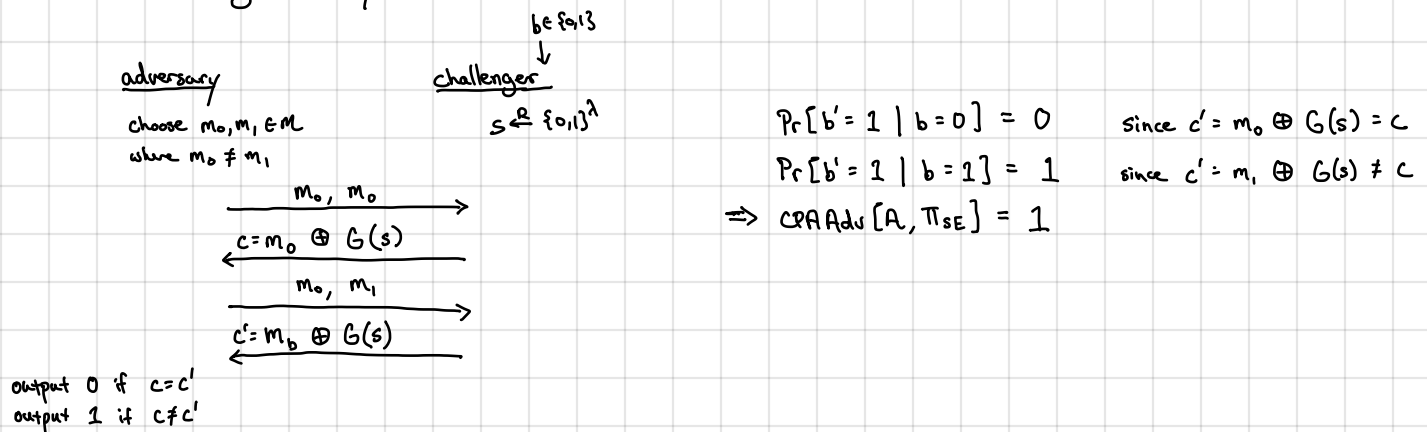 b ∈ {0,1}
↓
adversary
challenger
choose m₀, m₁ ∈ M
where m₀ ≠ m₁
s ←ᴿ {0,1}^λ
m₀, m₀
c = m₀ ⊕ G(s)
m₀, m₁
c' = m_b ⊕ G(s)
output 0 if c = c'
output 1 if c ≠ c'
Pr[b' = 1 | b = 0] = 0 since c' = m₀ ⊕ G(s) = c
Pr[b' = 1 | b = 1] = 1 since c' = m₁ ⊕ G(s) ≠ c
⇒ CPAAdv[A, Π_SE] = 1